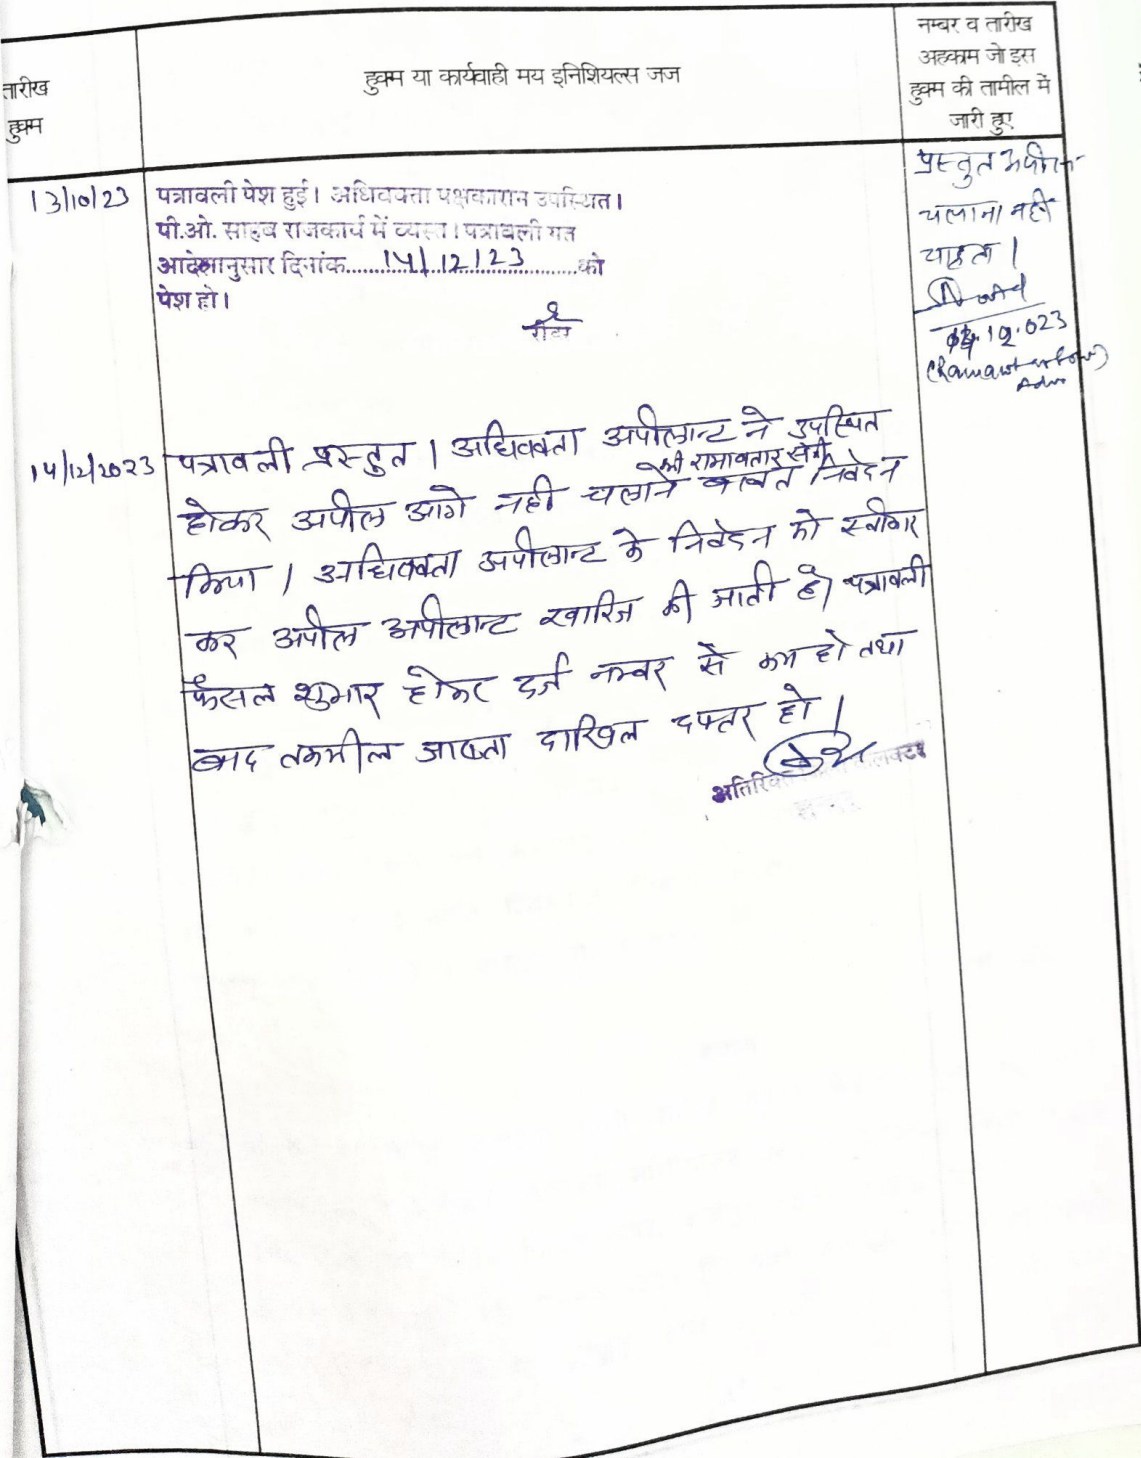 तारीख
हुक्म
हुक्म या कार्यवाही मय इनिशियल्स जज
नम्बर व तारीख
अहकाम जो इस
हुक्म की तामील में
जारी हुए
13/10/23
पत्रावली पेश हुई। अधिवक्ता पक्षकारान उपस्थित।
पी.ओ. साहब राजकार्य में व्यस्त। पत्रावली गत
आदेशानुसार दिनांक.....14/12/23.....को
पेश हो।
रीडर
प्रस्तुत अपील
चलाना नहीं
चाहता।
14/12/2023
पत्रावली प्रस्तुत। अधिवक्ता अपीलान्ट ने उपस्थित
श्री रामावतार सैनी
होकर अपील आगे नही चलाने बाबत निवेदन
किया। अधिवक्ता अपीलान्ट के निवेदन को स्वीकार
कर अपील अपीलान्ट खारिज की जाती है। पत्रावली
फैसल शुमार होकर दर्ज नम्बर से कम हो तथा
बाद तकमील जाब्ता दाखिल दफ्तर हो।